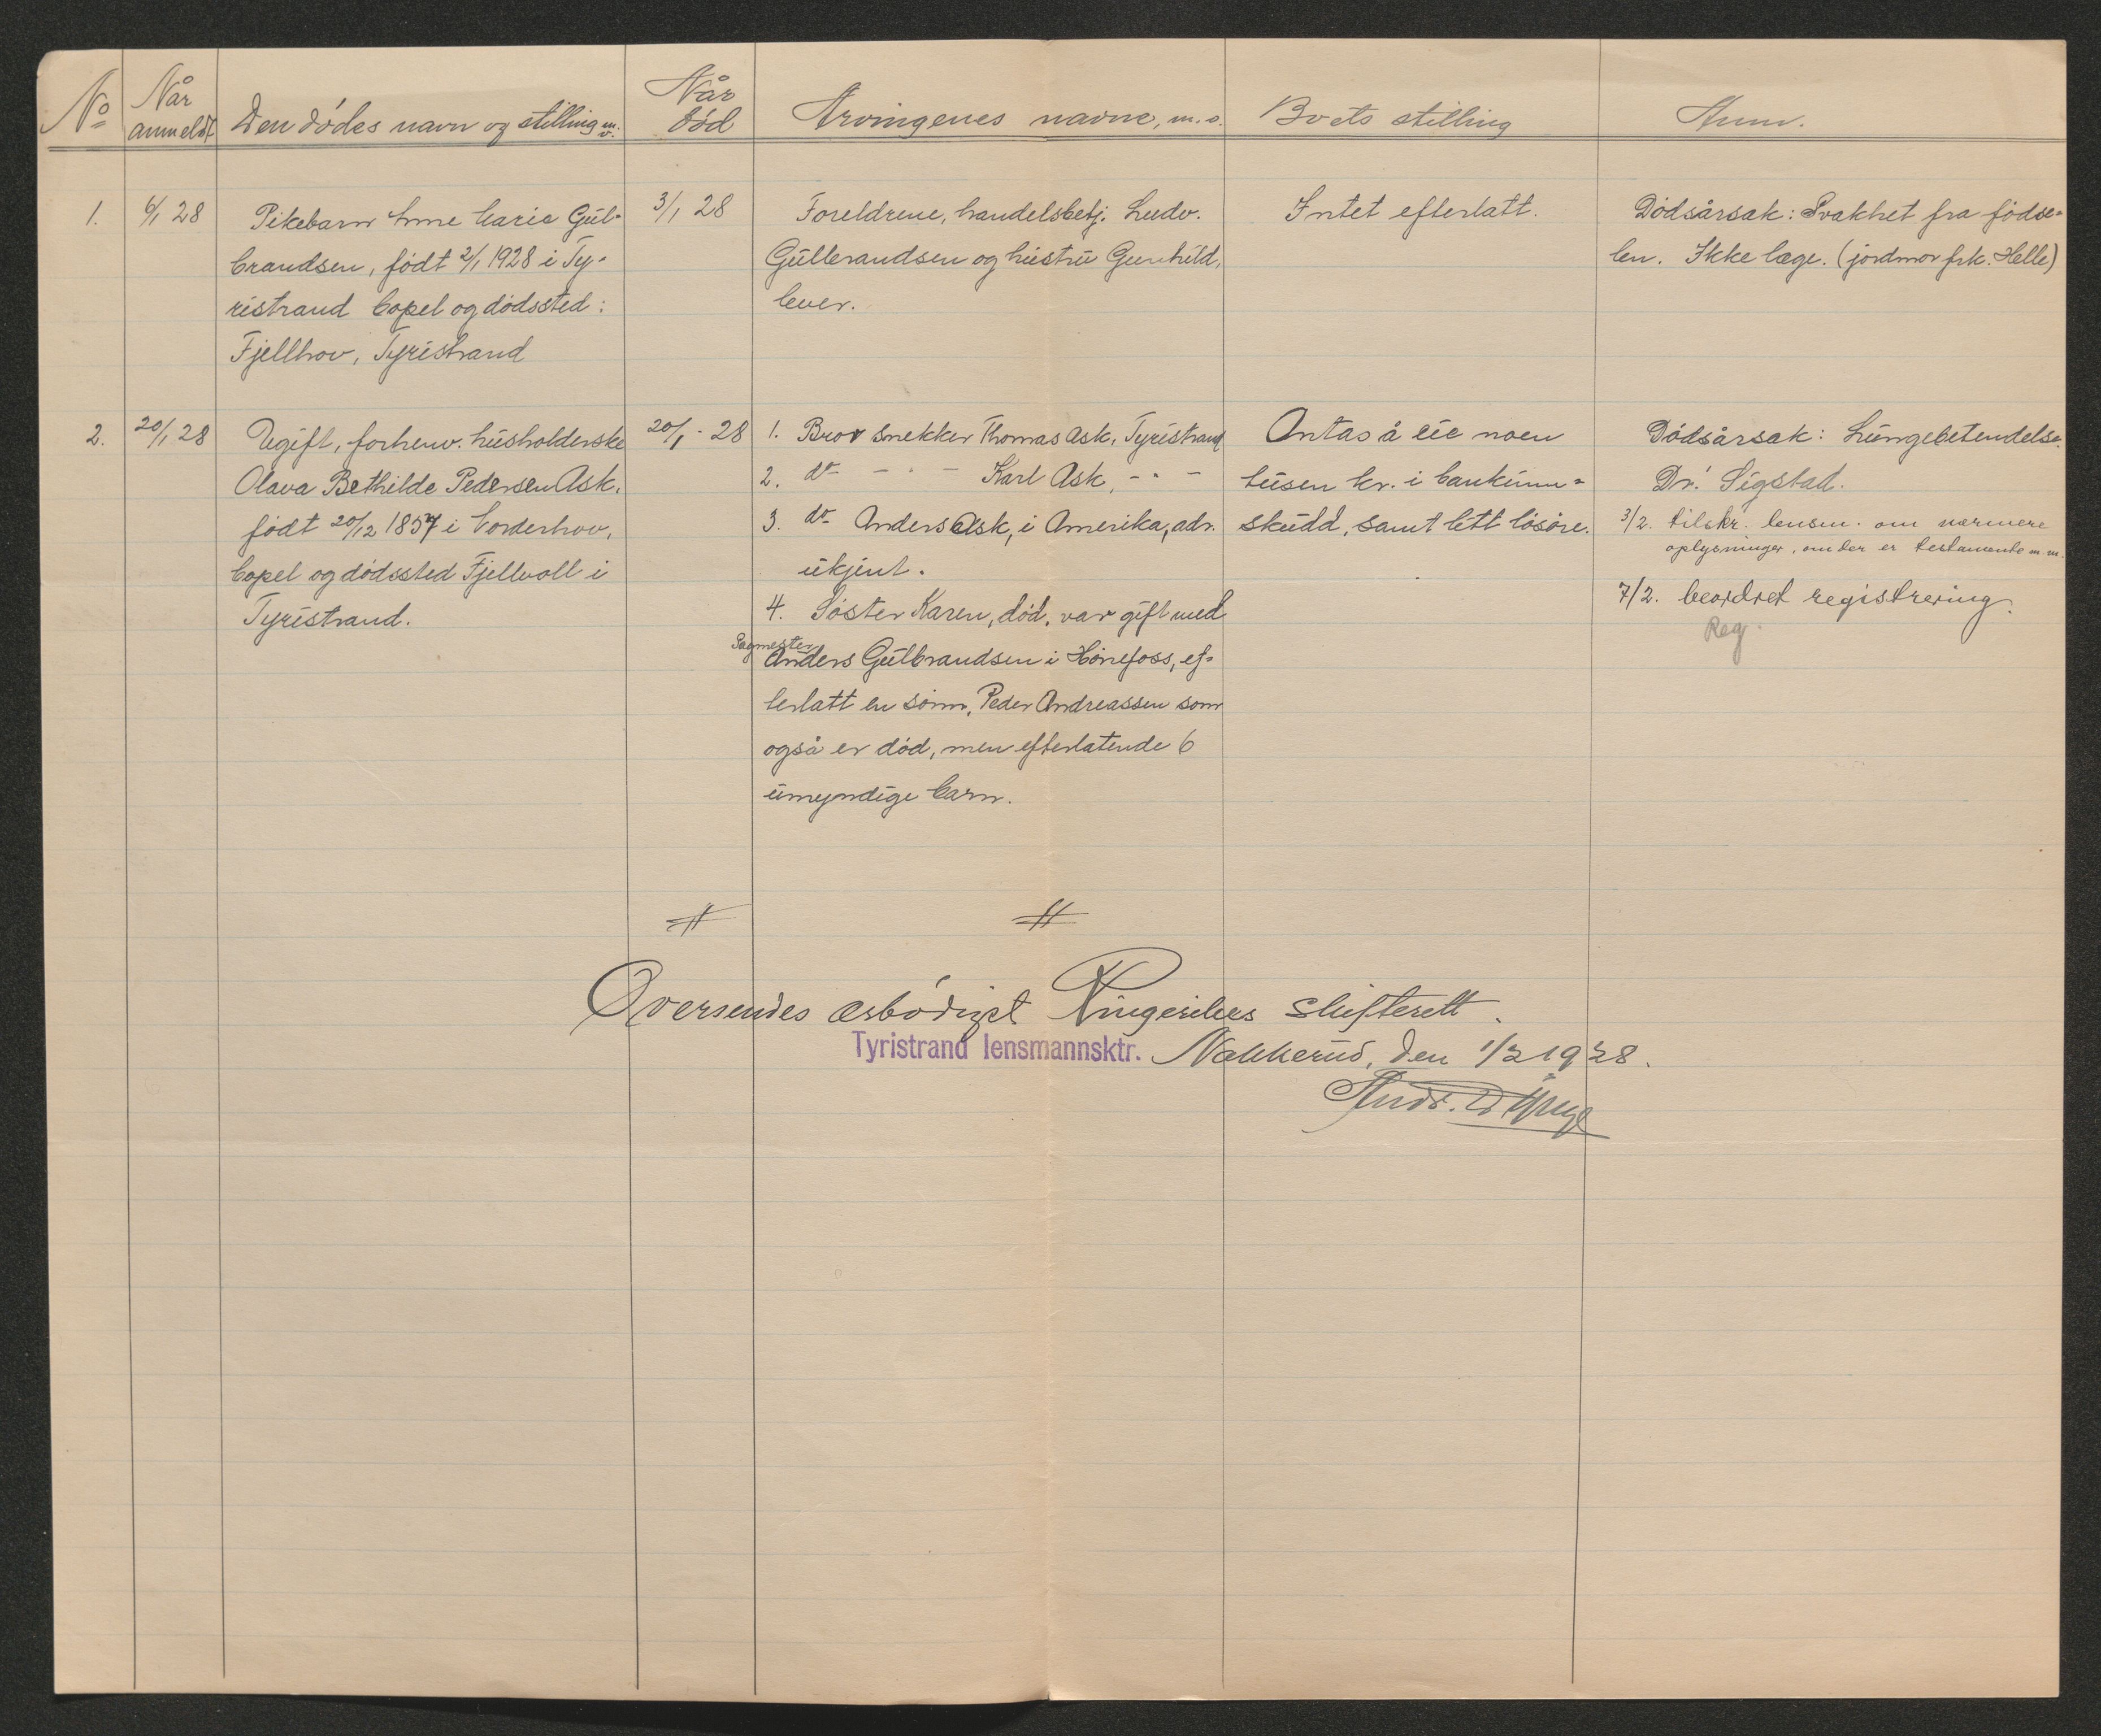 No
Når
anmeldt
Den dødes navn og stilling m.v.
Når
død
Arvingenes navne, m.v.
Boets stilling
Anm.
1.
6/1 28
Pikebarn Anne Marie Gul-
brandsen, født 2/1 1928 i Ty-
ristrand bopel og dødssted:
Fjellhov, Tyristrand
3/1 28
Foreldrene, handelsbetj. Ludv.
Gulbrandsen og hustru Gunhild,
lever.
Intet efterlatt.
Dødsårsak: Svakhet fra fødse-
len. Ikke læge. (jordmor frk. Helle)
2.
20/1 28
Ugift, forhenv. husholderske
Olava Bethilde Pedersen Ask,
født 20/12 1857 i Norderhov,
bopel og dødssted Fjellvoll i
Tyristrand.
20/1 - 28
1. Bror Snekker Thomas Ask, Tyristrand
2. do - " - Karl Ask, - " -
3. do Anders Ask, i Amerika, adr.
ukjent.
4. Søster Karen, død, var gift med
Sagmester
Anders Gulbrandsen i Hønefoss, ef-
terlatt en sønn, Peder Andreassen som
også er død, men efterlatende 6
umyndige barn.
Antas å eie noen
tusen kr. i bankinn-
skudd, samt litt løsøre.
Dødsårsak: Lungebetendelse.
Dr. Sigstad.
3/2. tilskr. lensm. om nærmere
oplysninger, om der er testamente m.m.
7/2. beordret registrering.
Reg.
Oversendes ærbødigst Ringerikes skifterett.
Tyristrand lensmannsktr. Nakkerud, den 1/2 1928.
Andr.